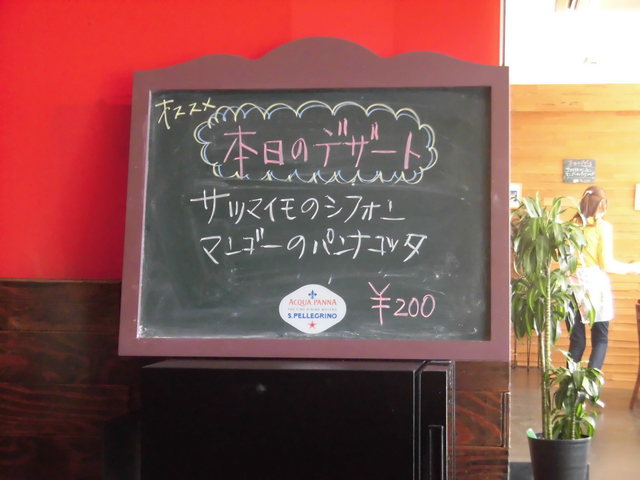 オススメ
本日のデザート
サツマイモのシフォン
マンゴーのパンナコッタ
ACQUA PANNA
S.PELLEGRINO
¥200